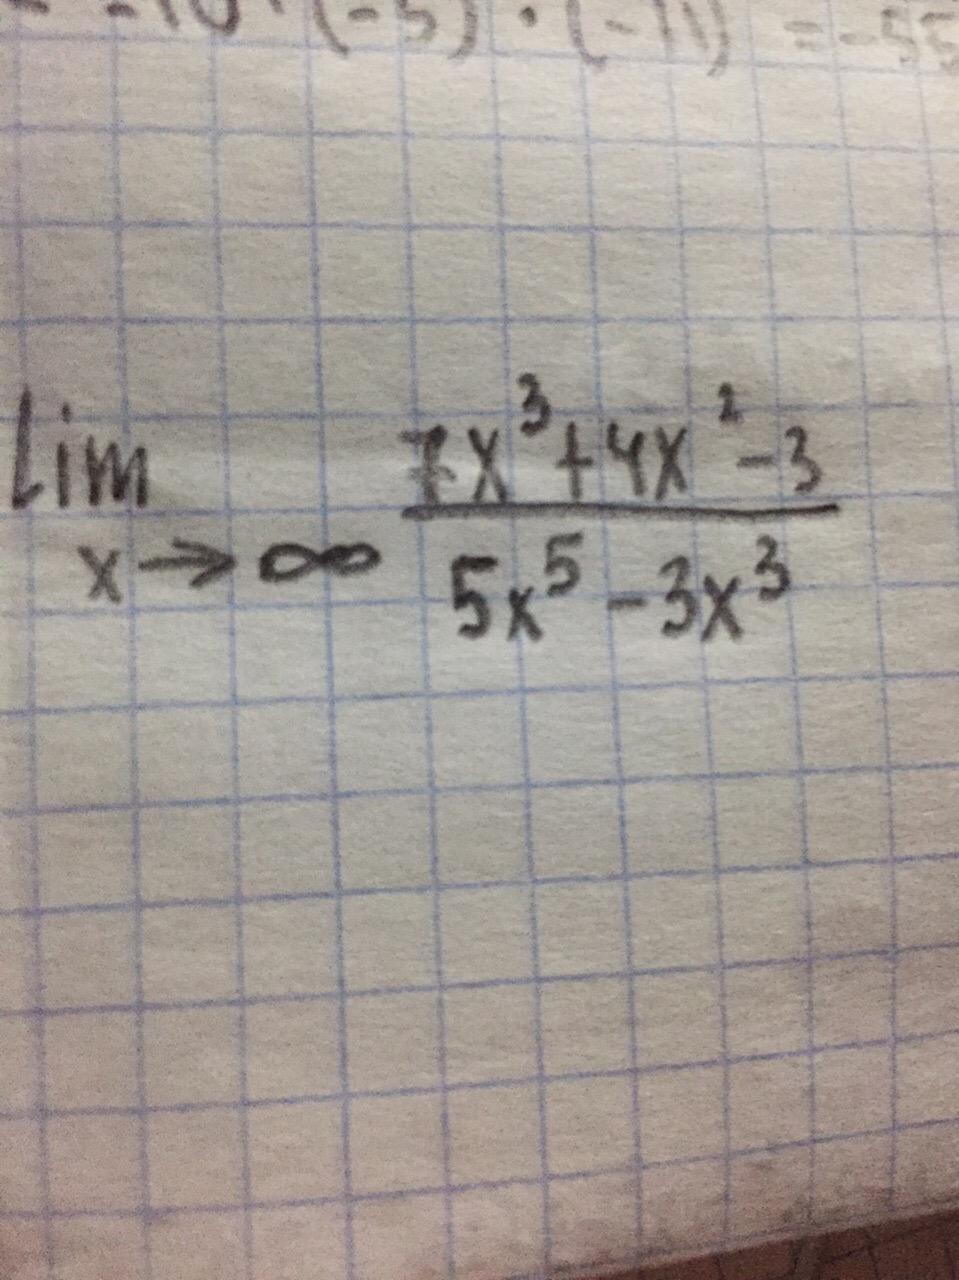 -10 · (-5) · (-11) = -55
Lim x→∞ (7x³+4x²-3)/(5x⁵-3x³)